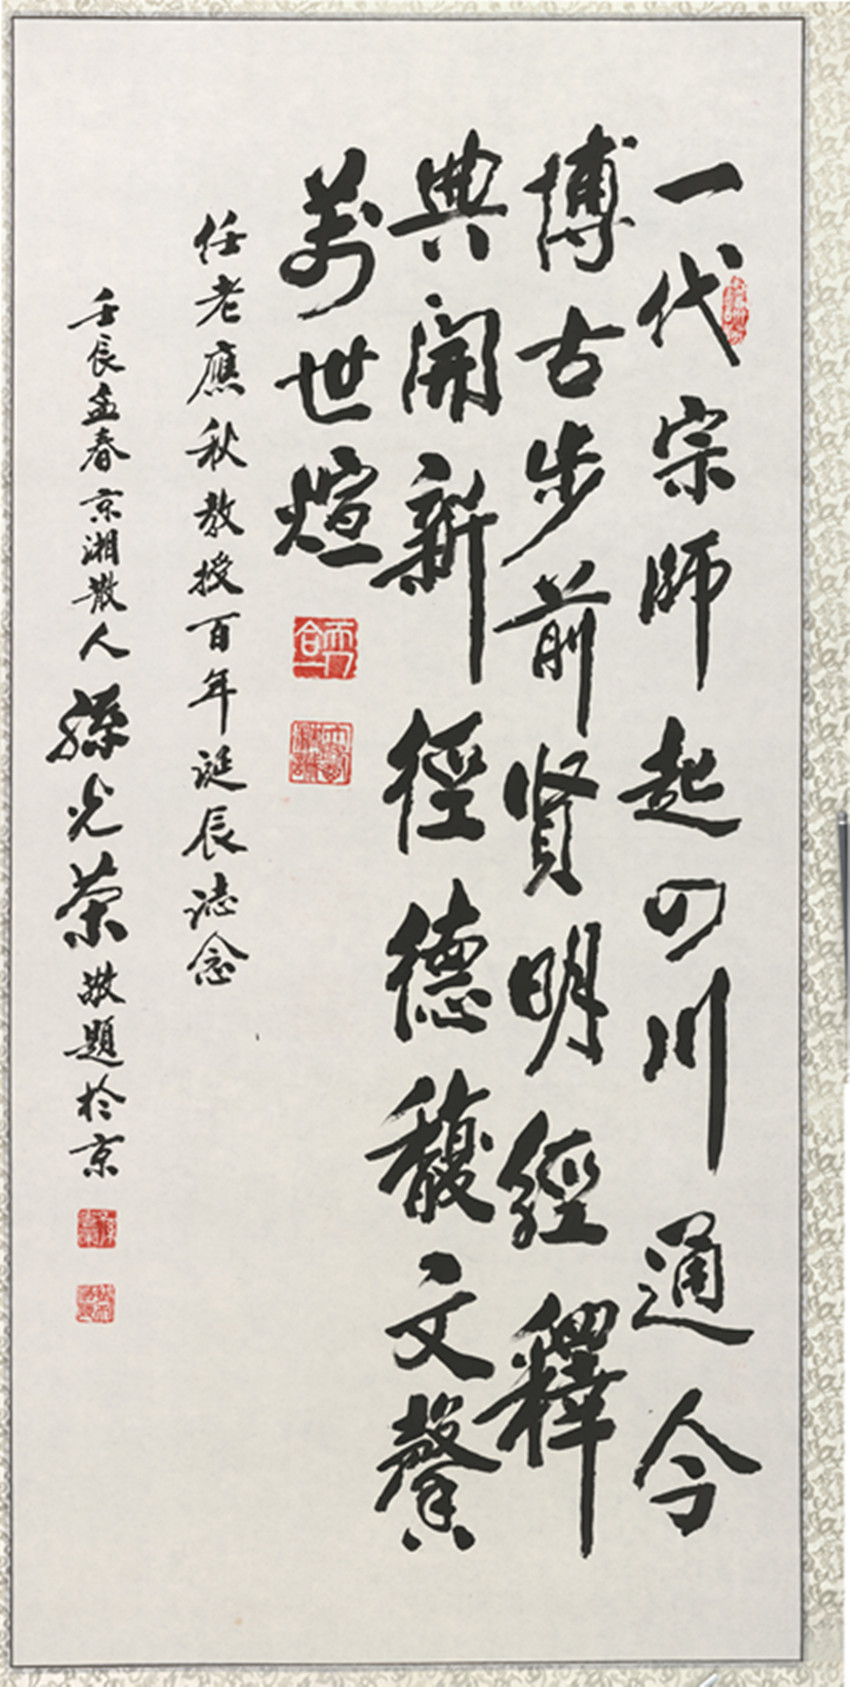 一代宗師起四川通今
博古步前賢明經釋
典開新徑德馥文馨
萬世煊
天人合一
任老應秋教授百年誕辰誌念
壬辰孟春京湘散人孫光荣敬題於京